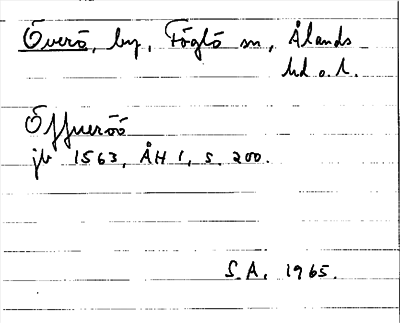 Överö, by, Föglö sn, Ålands
hd o. l.
Öffueröö
jb 1563, ÅH 1, s. 200.
S.A. 1965.